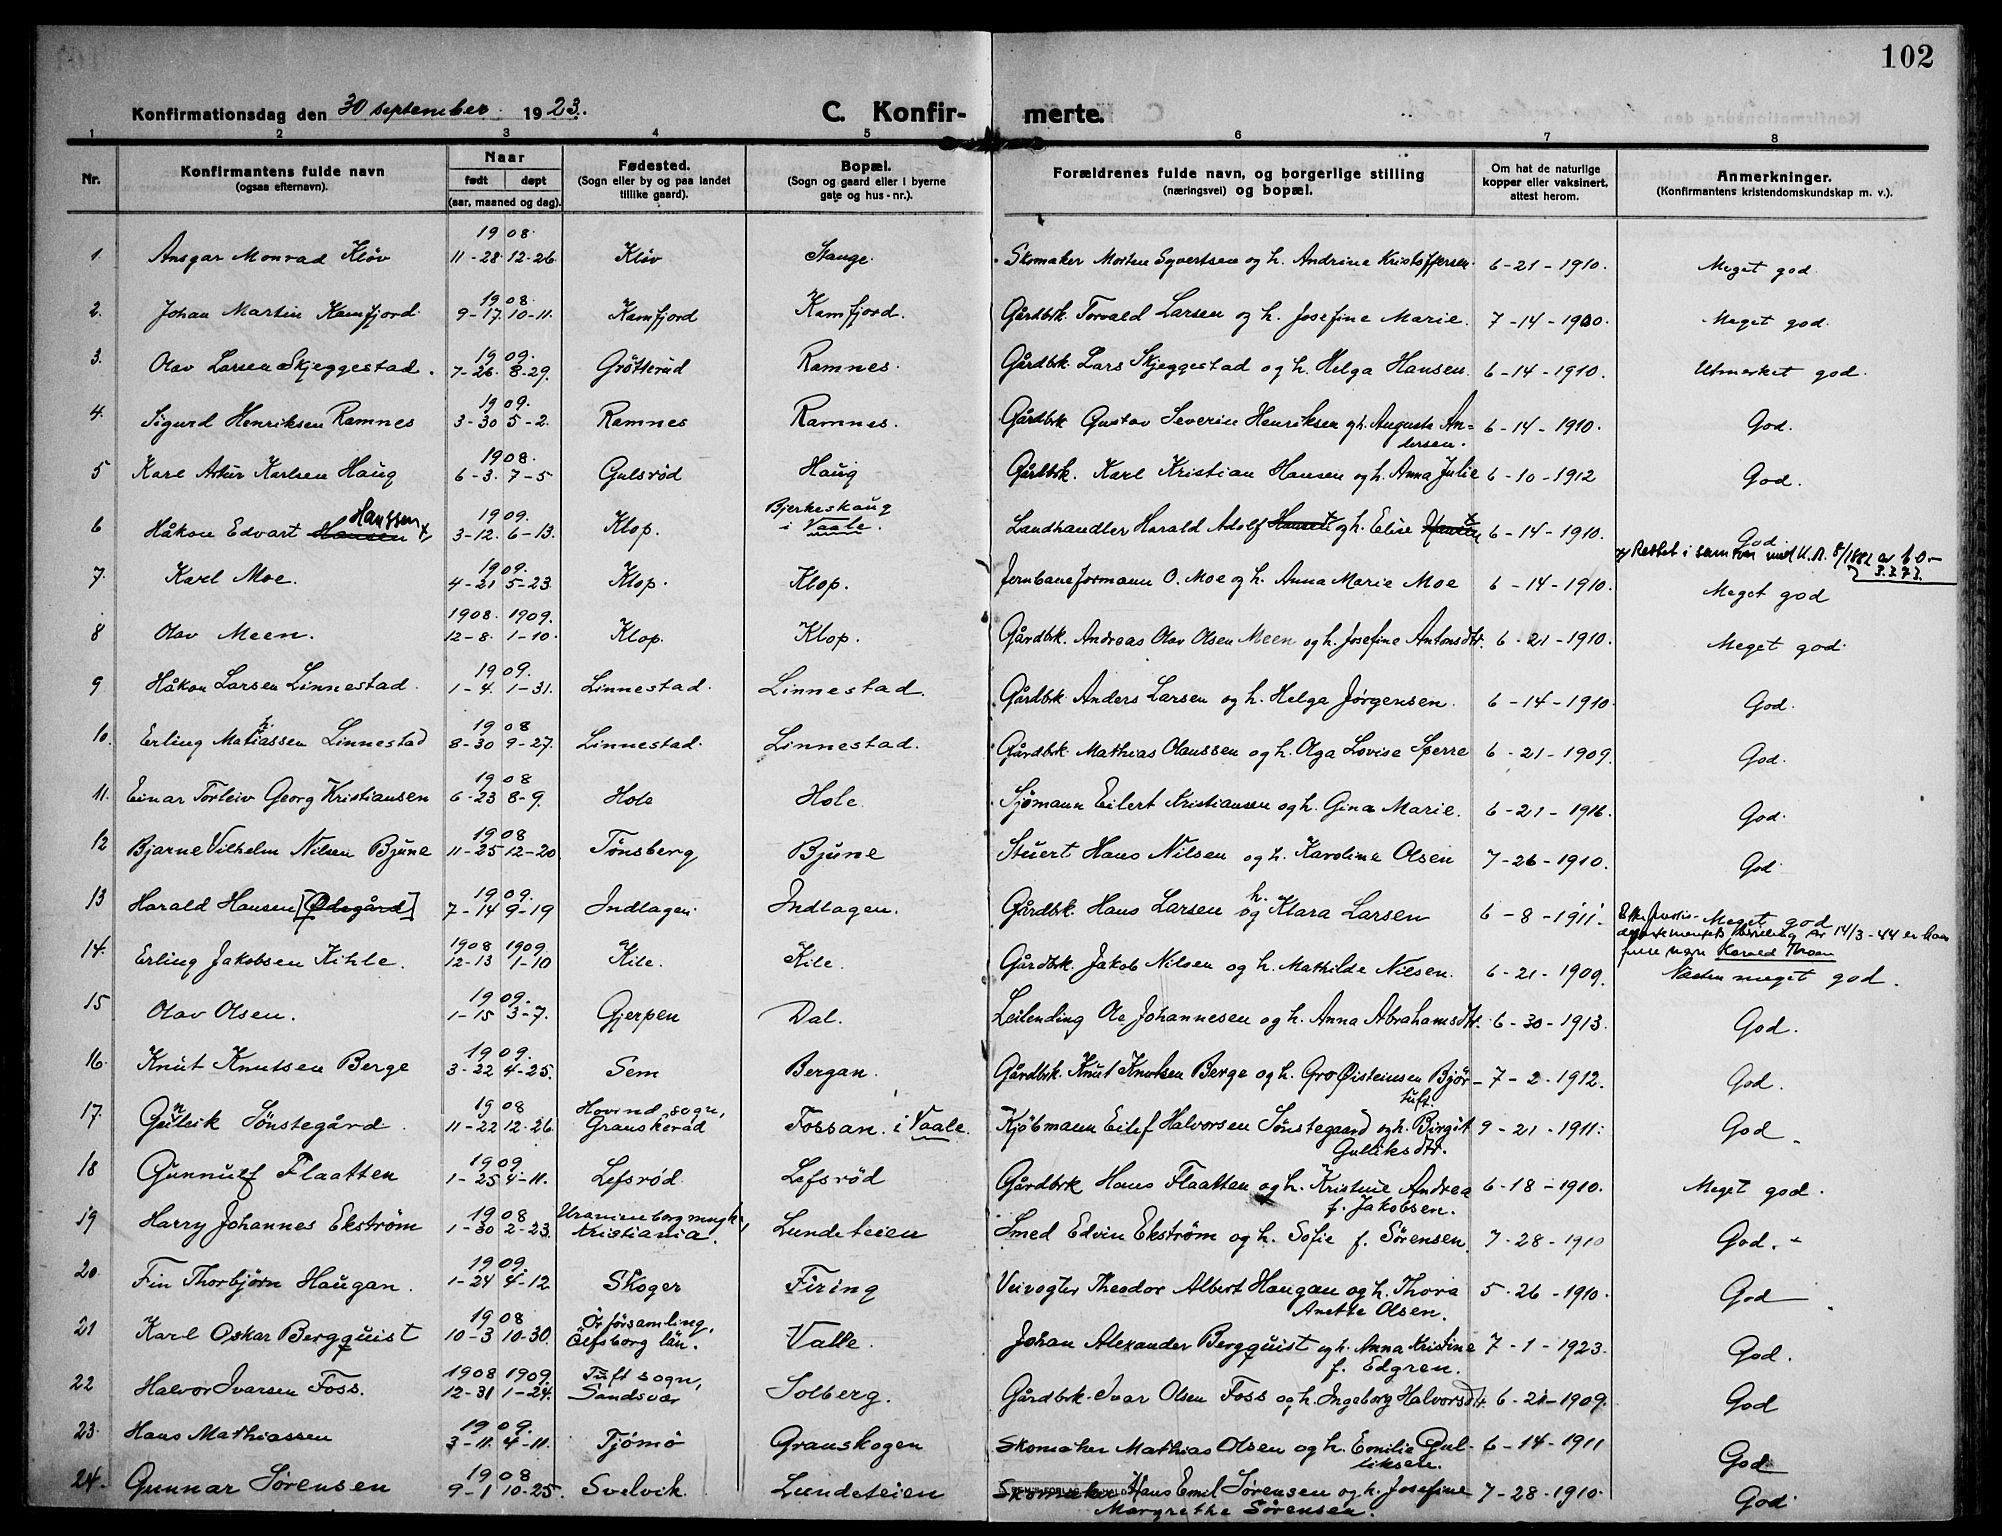 102
Konfirmationsdag den 30 september 1923.
C. Konfir-merte.
1 2 3 4 5 6 7 8
Nr.
Konfirmantens fulde navn
(ogsaa efternavn).
Naar
født døpt
(aar, maaned og dag).
Fødested.
(Sogn eller by og paa landet
tillike gaard).
Bopæl.
(Sogn og gaard eller i byerne
gate og hus-nr.).
Forældrenes fulde navn, og borgerlige stilling
(næringsvei) og bopæl.
Om hat de naturlige
kopper eller vaksinert,
attest herom.
Anmerkninger.
(Konfirmantens kristendomskundskap m. v.).
1908.
1. Ansgar Monrad Kløv 11-28 12-26 Kløv Stange. Skomaker Morten Syvertsen og h. Andrine Kristoffersen 6-21-1910. Meget god.
1908.
2. Johan Martin Kamfjord 9-17. 10-11. Kamfjord Kamfjord. Gårdbrk. Torvald Larsen og h. Josefine Marie. 7-14-1910. Meget god.
1909.
3. Olav Larsen Skjeggestad. 7-26. 8-29. Grötterud Ramnes. Gårdbrk. Lars Skjeggestad og h. Helga Hansen. 6-14-1910. Utmerket god.
1909.
4. Sigurd Henriksen Ramnes 3-30 5-2. Ramnes Ramnes. Gårdbrk Gustav Severin Henriksen og h. Augusta An-
dersen. 6-14-1910. God.
1908.
5 Karl Artur Karlsen Haug 6-3. 7-5 Gulsrød Haug Gårdbrk. Karl Kristian Hansen og h. Anna Julie 6-10-1912 God.
1909.
6 Håkon Edvart Hansen Hanssen x) 3-12. 6-13. Klop. Bjerkeskaug
i Vaale. Landhandler Harald Adolf Hansen og h. Elise Hansen 6-14-1910. God.
x) Rettet i samsvar med K.R. 8/1882
3.3.73.
1909.
7. Karl Moe. 4-21 5-23 Klop. Klop. Jernbaneformann O. Moe og h. Anna Marie Moe 6-14-1910. Meget god
1908. 1909.
8 Olav Meen. 12-8. 1-10. Klop. Klop. Gårdbrk. Andreas Olav Olsen Meen og h. Josefine Antonsdtr. 6-21-1910. Meget god.
1909.
9 Håkon Larsen Linnestad. 1-4. 1-31. Linnestad. Linnestad. Gårdbrk. Anders Larsen og h. Helga Jørgensen. 6-14-1910. God.
1908
10. Erling Mathiassen Linnestad 8-30 9-27. Linnestad. Linnestad. Gårdbrk. Mathias Olaussen og h. Olga Lovise Sperre 6-21-1909. God.
1908
11. Einar Torleiv Georg Kristiansen 6-23 8-9. Hole Hole. Sjømann Eilert Kristiansen og h. Gina Marie. 6-21-1916. God.
1908
12 Bjarne Vilhelm Nilsen Bjune 11-25 12-20 Tønsberg Bjune Stuert Hans Nilsen og h. Karoline Olsen 7-26-1910. God
1909.
13 Harald Hansen [Ødegård] 7-14 9-19 Indlagen. Indlagen. Gårdbrk. Hans Larsen og h. Klara Larsen 6-8-1911. Meget god
Efter Justis-
departementets bevilling av 14/3-44 er hans
fulle navn Harald Thoen
1908 1909.
14. Erling Jakobsen Kihle. 12-13 1-10 Kile. Kile. Gårdbrk. Jakob Nilsen og h. Mathilde Nilsen. 6-21-1909. Næsten meget god.
1909.
15 Olav Olsen. 1-15 3-7. Gjerpen Dal. Leilending Ole Johannesen og h. Anna Abrahamsdtr. 6-30-1913. God.
1909.
16. Knut Knutsen Berge 3-22 4-25. Sem Bergan. Gårdbrk. Knut Knutsen Berge og h. Gro Øisteinsen Bjør-
tuft. 7-2-1912. God.
1908
17. Gunleik Sønstegård. 11-22 12-26. Hovind sogn,
Granskerød Fossan. i Vaale. Kjøbmann Eilef Halvorsen Sønstegaard og h. Birgit
Gulliksdtr. 9-21-1911. God
1909.
18 Gunnulf Flaatten 1-25 4-11. Lefsrød. Lefsrød Gårdbrk Hans Flaatten og h. Kristine Andrea
f. Jakobsen. 6-18-1910. Meget god.
1908
19 Harry Johannes Ekstrøm 1-30 2-23. Uranienborg mngh.,
Kristiania. Lundeteien Smed Edvin Ekstrøm og h. Sofie f. Sørensen. 7-28-1910 God.
1909.
20. Fin Thorbjørn Haugan. 1-24 4-12 Skoger Firing Veivogter Theodor Albert Haugan og h. Thora
Anette Olsen. 5-26-1910. God
1908
21 Karl Oskar Bergquist 10-3 10-30. Ör församling,
Älfsborg län. Valle. Johan Alexander Bergquist og h. Anna Kristine
f. Edgren. 7-1-1923. God.
1908 1909.
22 Halvor Ivarsen Foss. 12-31 1-24. Tuft sogn,
Sandsvær Solberg. Gårdbrk. Ivar Olsen Foss og h. Ingeborg Halvorsdtr. 6-21-1909. God
1909.
23. Hans Mathiassen 3-11. 4-11. Tjømø Granskogen Skomaker Mathias Olsen og h. Emilie Gul-
liksen. 6-14-1911 God
1908
24. Gunnar Sørensen 9-1 10-25. Svelvik. Lundeteien Skomaker Hans Emil Sørensen og h. Josefine
Margrethe Sørensen. 7-28-1910. God.